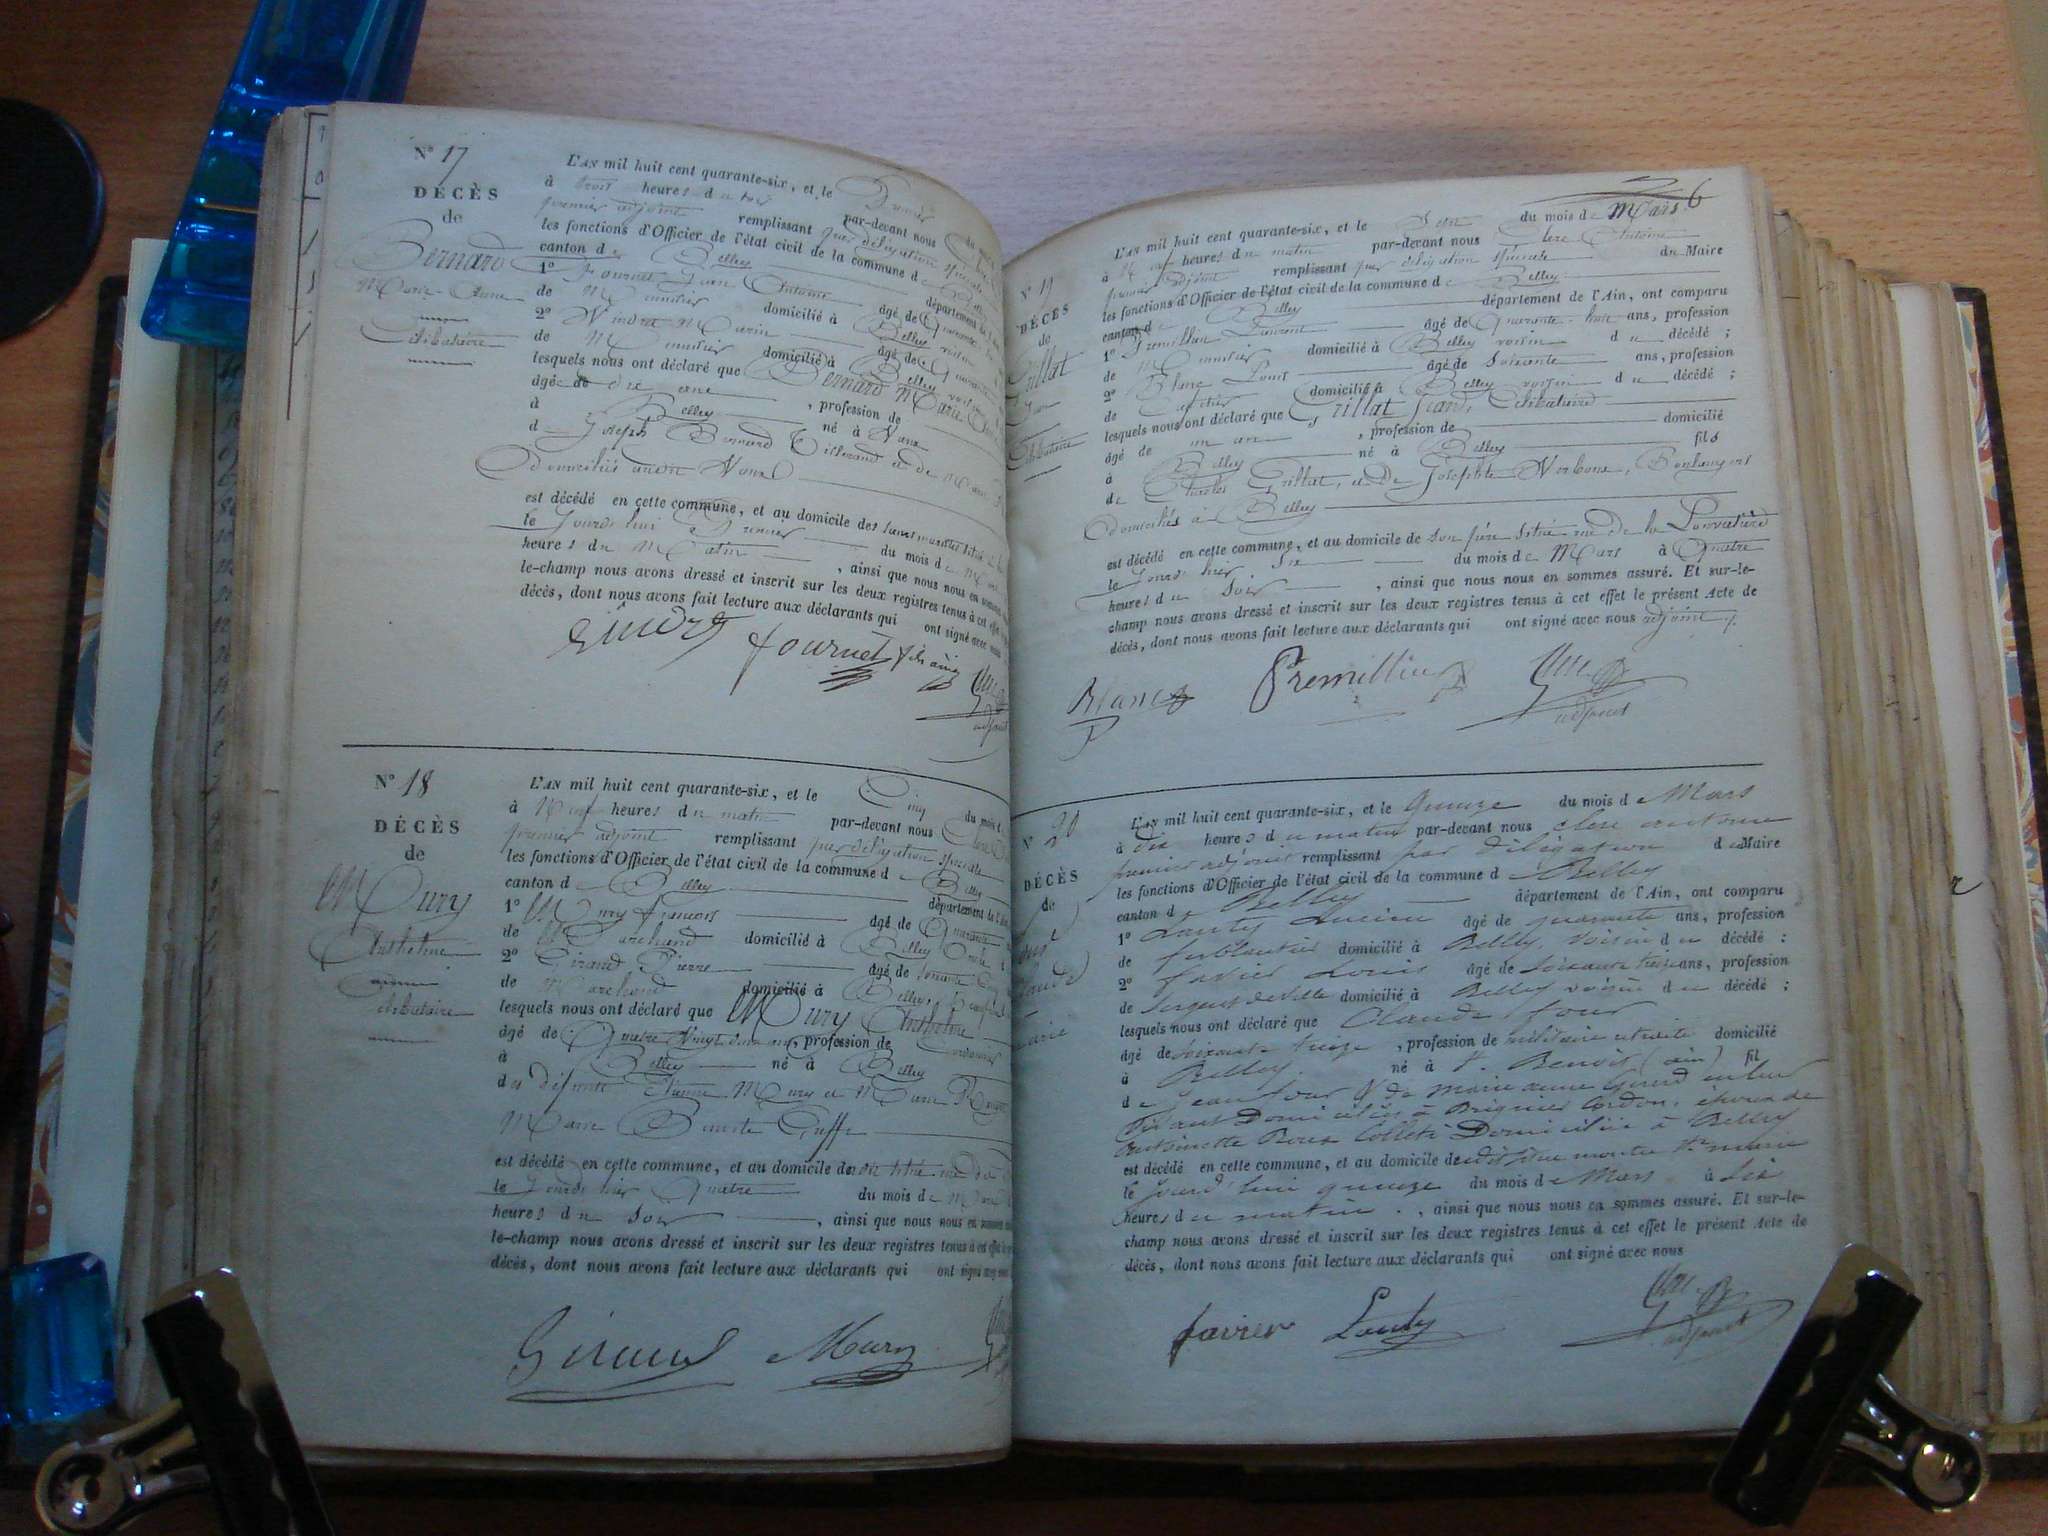 N° 17
DÉCÈS
de
Bernard
Marie-Anne
Célibataire
L'AN mil huit cent quarante-six, et le Premier du mois
à trois heures du soir par-devant nous
premier adjoint remplissant par délégation spéciale
les fonctions d'Officier de l'état civil de la commune d
canton de Belley département de
1° Fournet Jean Antoine âgé de Quarante
de Menuisier domicilié à Belley voisin
2° Marin âgé de Quarante
de Menuisier domicilié à Belley voisin
lesquels nous ont déclaré que Bernard Marie
âgée de dix ans, profession de
à Belley né à
d Joseph Bernard Tisserand et de Marie
domiciliés audit
est décédé en cette commune, et au domicile des
le Jourd'hui Premier du mois de Mars
heures du Matin, ainsi que nous nous en sommes
le-champ nous avons dressé et inscrit sur les deux registres tenus à cet effet
décès, dont nous avons fait lecture aux déclarants qui ont signé avec nous
fournet fils ainé
adjoint
N° 18
DÉCÈS
de
Mury
Anthelme
Célibataire
L'AN mil huit cent quarante-six, et le Cinq du mois d
à Neuf heures du matin par-devant nous Clerc
premier adjoint remplissant par délégation spéciale
les fonctions d'Officier de l'état civil de la commune de Belley
canton de Belley département de l'Ain
1° Mury François âgé de Quarante
de Marchand domicilié à Belley
2° Giraud Pierre âgé de soixante cinq
de Marchand domicilié à Belley
lesquels nous ont déclaré que Mury Anthelme
âgé de Quatre Vingt deux ans, profession de Cordonnier
à Belley né à Belley
des défunts Etienne Mury et Marie
Marie
est décédé en cette commune, et au domicile de
le Jourd'hier Quatre du mois de Mars
heures du Soir, ainsi que nous nous en sommes
le-champ nous avons dressé et inscrit sur les deux registres tenus à cet effet
décès, dont nous avons fait lecture aux déclarants qui ont signé avec nous
Giraud Mury
6
N° 19
DÉCÈS
de
Grillat
Célibataire
L'AN mil huit cent quarante-six, et le Sept du mois de Mars
à Neuf heures du matin par-devant nous Clerc Antoine
premier adjoint remplissant par délégation spéciale du Maire
les fonctions d'Officier de l'état civil de la commune de Belley
canton de Belley département de l'Ain, ont comparu
1° Premillieu Laurent âgé de Quarante-huit ans, profession
de Menuisier domicilié à Belley voisin du décédé ;
2° Blanc Louis âgé de soixante ans, profession
de domicilié à Belley voisin du décédé ;
lesquels nous ont déclaré que Grillat Jean, Célibataire
âgé de un an, profession de domicilié
à Belley né à Belley fils
de Charles Grillat, et De Josephte Boulangers
domiciliés à Belley
est décédé en cette commune, et au domicile de son père situé rue de la
le Jourd'hier Six du mois de Mars à Quatre
heures du Soir, ainsi que nous nous en sommes assuré. Et sur-le-
champ nous avons dressé et inscrit sur les deux registres tenus à cet effet le présent Acte de
décès, dont nous avons fait lecture aux déclarants qui ont signé avec nous adjoint
Blanc Premillieu
adjoint
N° 20
DÉCÈS
de
L'AN mil huit cent quarante-six, et le quinze du mois de Mars
à dix heures du matin par-devant nous clerc antoine
premier adjoint remplissant par délégation du Maire
les fonctions d'Officier de l'état civil de la commune d Belley
canton d Belley département de l'Ain, ont comparu
1° Lauty Lucien âgé de quarante ans, profession
de ferblantier domicilié à Belley, voisin du décédé :
2° favier Louis âgé de soixante treize ans, profession
de sergent de ville domicilié à Belley voisin du décédé ;
lesquels nous ont déclaré que Claude four
âgé de soixante treize, profession de militaire retraité domicilié
à Belley né à St. Benoit (ain) fil
de Jean four & de marie anne en leur
vivant Domiciliés à Brégnier Cordon, époux de
antoinette Domiciliée à Belley
est décédé en cette commune, et au domicile de
le jourd'hui quinze du mois de Mars à six
heures du matin, ainsi que nous nous en sommes assuré. Et sur-le-
champ nous avons dressé et inscrit sur les deux registres tenus à cet effet le présent Acte de
décès, dont nous avons fait lecture aux déclarants qui ont signé avec nous
favier Lauty
adjoint